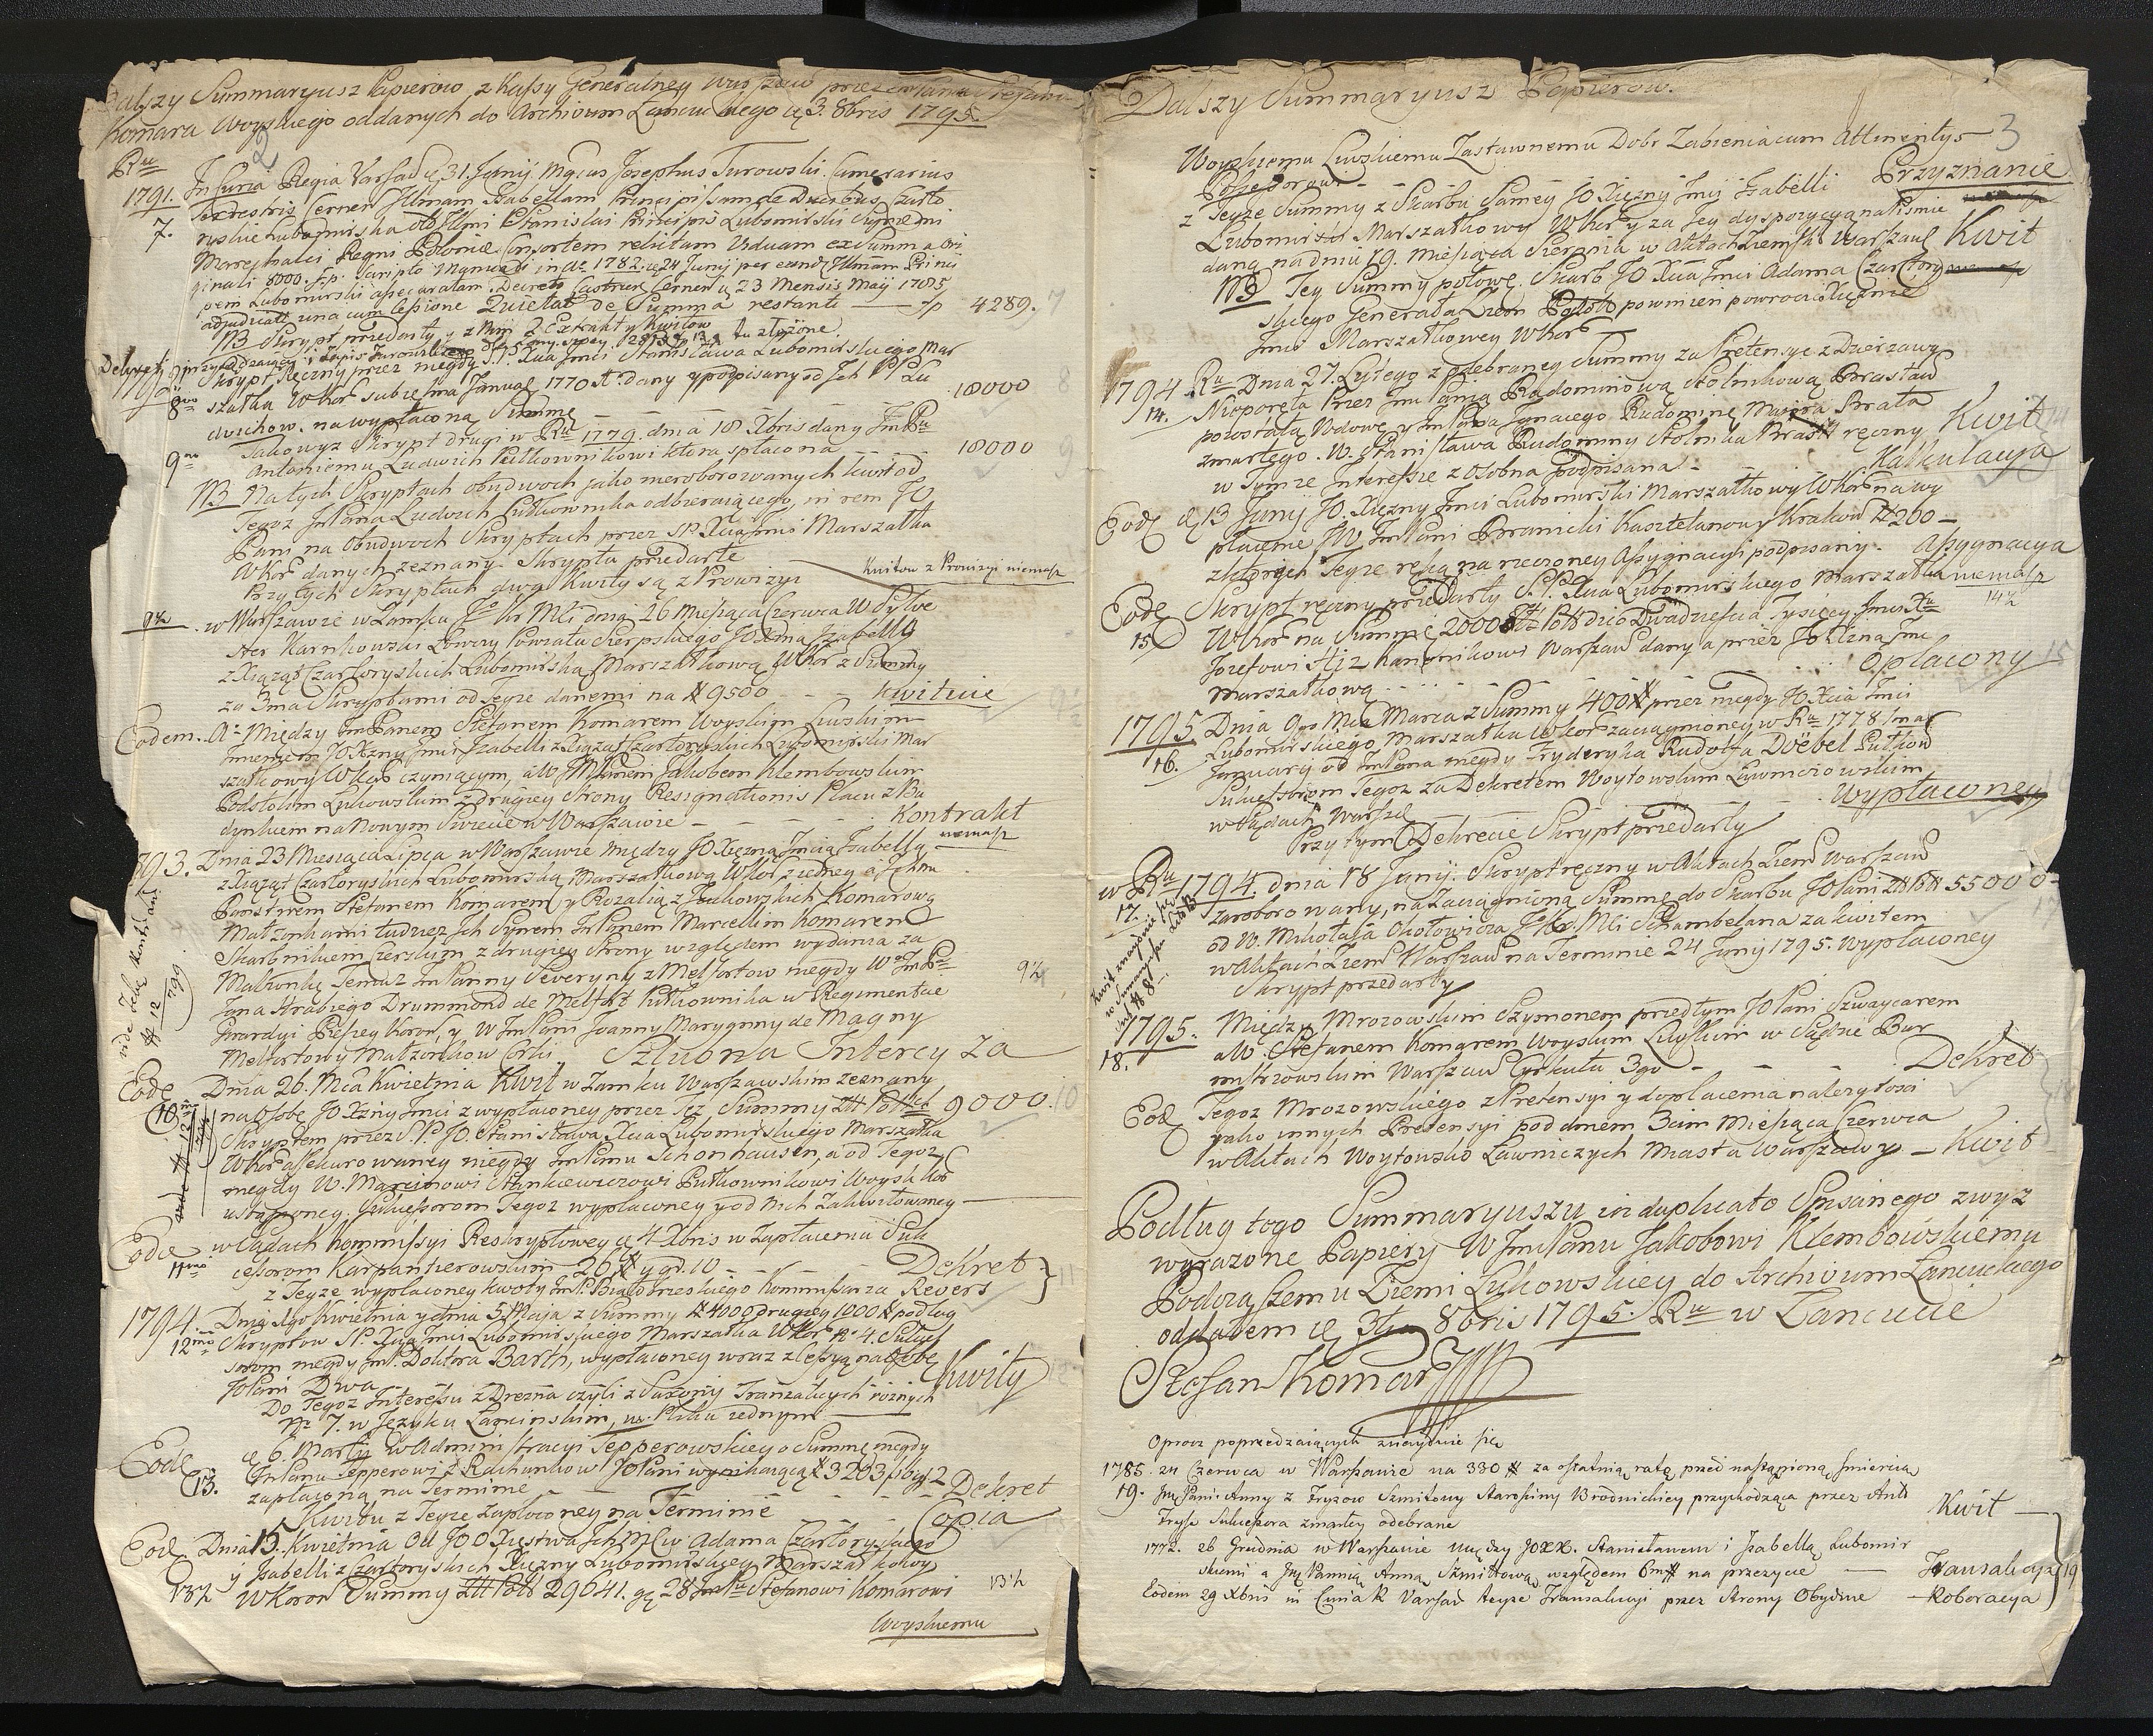 Dalszy Summaryusz Papierow z Kassy Generalney Warszaw przez
Komara Woyskiego oddanych do Archivum Lancuckiego 3. 8bris 1795.
2
Ru
1791. In Curia Regia Varsav 31. Junij Mgcus Josephus Turowski Camerarius
7. Terrestris Cernen Illmam Isabellam Principissam de Ducibus Czarto
ryskie Lubomirska olim Illmi Stanislai Principis Lubomirski Supremi
Mareschalci Regni Poloniæ Consortem relictam Viduam ex Summa Ori
ginali 8000. Fp. Scripto Manuali in Ao 1782. 24 Junij per eund Illmum Princi
pem Lubomirski assecuratam. Decreto Castrensi Cernen 23 Mensis Maij 1785
adjudicate una cum lessione Quietat de Summa restante — fp 4289. 7
NB Skrypt przedarty y z Nim 2. Extrakty Kwitow
Skrypt Ręczny przez niegdy S.P. Xcia Jmci Stanisława Lubomirskiego Mar
8vo szałka WKor sub 1ma Januar 1770 Ao dany y podpisany od Ich PP Lu
dwichow. na wypłaconą Summę 18000 8
9no Takowyż Skrypt drugi w Ru 1779. dnia 18 Xbris dany JmPu
Antoniemu Ludwich Pułkownikowi ktora spłacona 18000 9
NB Na tych Skryptach obudwoch jako nieroborowanych kwit od
Tegoż JmPana Ludwich Pułkownika odbieraiącego, in rem JO
Pani na Obudwoch Skryptach przez SP. Xcia Jmci Marszałka
WKor danych zeznany. Skrypta przedarte
Przy tych Skryptach dwa Kwity są z Prowizyi Kwitow z Prowizyi niemasz
9½ w Warszawie w Zamku Jo Kr Mci dnia 26 Miesiąca Czerwca W Sylwe
ster Karnkowski Łowczy Powiatu Sierpskiego JOXma Izabellą
z Xiążąt Czartoryskich Lubomirską Marszałkową WKor z Summy
za 3ma Skryptami od Teyże danemi na # 9500 - - - kwituie
Eodem. Ao Między JmPanem Stefanem Komarem Woyskim Liwskim
Imieniem JOXzny Jmci Izabelli z Xiążąt Czartoryskich Lubomirski Mar
szałkowy WKor czyniącym, a W JmPanem Jakubem Klembowskim
Podstolim Łukowskim z drugiey strony Resignationis Placu z Bu
dynkiem na Nowym Swiecie w Warszawie - - - - Kontrakt
niemasz
1793. Dnia 23 Miesiąca Lipca w Warszawie między JOXiężną Jmcią Izabellą
z Xiążąt Czartoryskich Lubomirską Marszałkową WKor z iedney a Ichm
Państwem Stefanem Komarem y Rozalią z Żukowskich Komarową
Małżonkami tudzież Ich Synem JmPanem Marcellim Komarem
Skarbnikiem Czerskim z drugiey Strony względem wydania za
Małżonkę Temuż JmPanny Seweryny z Melfortow niegdy Wo JmPa
Jana Hrabiego Drummond de Melfort Pułkownika w Regimencie
Gwardyi Pieszey Koron, y W JmPani Joanny Marygnny de Magny
Melfortowy Małżonkow Corki Szlubna Intercyza
9¾
Eode Dnia 26. Mca Kwietnia Kwit w Zamku Warszawskim zeznany
10mo na osobę JOXżny Jmci z wypłaconey przez Tęż Summy Złł Polsk 9000. 10
Skryptem przez S.P. JO. Stanisława Xcia Lubomirskiego Marszałka
WKor assekurowaney niegdy JmPanu Schonhausen, a od Tegoż
niegdy W. Marcinowi Stankiewiczowi Pułkownikowi Woysk Kor
ustąpioney. Sukcessorom Tegoż wypłaconey y od nich zakwitowaney
Eode w Sądach Kommissyi Reskryptowey 4 Xbris w Zapłaceniu Suk
11mo cessorom Karpantierowskim 26 # y gr. 10 - - - Dekret } 11
z Teyże wypłaconey kwoty JmP. Białobrzeskiego Kommissarza Rewers
1794. Dnia 1go Kwietnia y dnia 5 Maja z Summy # 4000 drugiey 1000 # podług
12mo Skryptow SP. Xcia Jmci Lubomirskiego Marszałka WKor No 4. Sukces
sorom niegdy JmP. Doktora Barth, wypłaconey wraz z lessyą na Osobę
JOPani Dwa Kwity 12
Do Tegoż Interessu z Drezna czyli z Saxonij Tranzakcych różnych
No 7. w Języku Łacinskim, w Pliku iednym
Eode 6. Martij w Administracyi Tepperowskiego Summę niegdy
13. JmPanu Tepperowi z Rachunkow JOPani wynikaiącą # 3203
zapłaconą na Terminie - - - - - Dekret
Kwitu z Teyże Zapłaconey na Terminie - - Copia
Eod Dnia 15. Kwietnia Od JOOXięstwa IchMciw Adama Czartoryskiego
y Izabelli z Czartoryskich Xiężny Lubomirskiey Marszałkowy
13½ WKoron Summy Złł Polsk 29641. gr 28 JmPu Stefanowi Komarowi 13½
Woyskiemu
Dalszy Summaryusz Papierow.
3
Woyskiemu Liwskiemu Zastawnemu Dobr Zabienia cum Attinentys
Possessorowi - - - - - Przyznanie
z Teyże Summy z Skarbu Samey JOXiężny Jmci Izabelli
Lubomirski Marszałkowy WKor y za Jey dyspozycyą na Pismie
daną na dniu 19. Miesiąca Sierpnia w Aktach Ziemsk Warszaw Kwit
NB Tey Summy połowę. Skarb JO Xcia Jmci Adama Czartory
skiego Generała Ziem Podols powinien powrocić Xiężnie
Jmci Marszałkowey WKor
1794. Ru Dnia 27. Lutego z przebraney Summy za Pretensye z Dzierżawy
14. Nieporęta Przez JmPanią Radominową Stolnikową Brasław
powstałą Wdowę y JmPana Ignacego Radominę Majora Brata
zmarłego. W. Stanisława Radominy Stolnika Brasł ręczny Kwit
w Tymże Interessie z osobna podpisana - Kalkulacya
Eod 13 Junij JO. Xiężny Jmci Lubomirski Marszałkowy WKor na wy
płacenie JW JmPani Branicki Kasztelanowy Krakow # 200 -
z których Teyże ręką na rzeczoney Assygnacyi podpisany. Assygnacya
niemasz
14½
Eode Skrypt ręczny przedarty S.P. Xcia Lubomirskiego Marszałka
15 WKor na Summę 20000 Złł Polsk dico Dwadzieścia Tysięcy Jmci Xu
Jozefowi Hiż Kanonikowi Warszaw dany a przez JOXżną Jmc
Marszałkową . . . . . . . . . Opłacony 15
1795 Dnia 9go Mca Marca z Summy 400 # przez niegdy JO.Xcia Jmci
16. Lubomirskiego Marszałka WKor zaciągnioney w Ru 1778 1ma
Januarij od JmPana niegdy Fryderyka Rudolfa Döebel Pułkow
Sukcessorom Tegoż za Dekretem Woytowskim Ławniczowskim
w Sądach Warszaw - - - wypłaconey
Przy tym Dekrecie Skrypt przedarty
w Ru 1794. dnia 18 Junij. Skrypt ręczny w Aktach Ziem Warszaw
17. zaroborowany, na Zaciągnioną Summę do Skarbu JOPani Zł Pols 55000
od W. Mikołaja Okołowicza JoKr. Mci Schambelana za kwitem
w Aktach Ziem Warszaw na Terminie 24 Junij 1795. wypłaconey
Skrypt przedarty
1795. Między Mrozowskim Szymonem przedtym JOPani Szwaycarem
18. a W. Stefanem Komarem Woyskim Liwskim w Sądzie Bur
mistrzowskim Warszaw Cyrkułu 3go - - - - Dekret
Eod Tegoż Mrozowskiego z Pretensyi y dopłacenia należytosci
jako innych Pretensyi pod dniem 3cim Miesiąca Czerwca
w Aktach Woytowsko Ławniczych Miasta Warszawy — Kwit
Podług tego Summaryuszu in duplicato Spisanego zwyż
wyrażone Papiery W JmPanu Jakobowi Klembowskiemu
Podczaszemu Ziemi Łukowskiey do Archivum Łancuckiego
oddałem 3tia 8bris 1795. Ru w Łancucie
Stefan Komar
Oprocz poprzedzaiących znayduie się
1785. 24 Czerwca w Warszawie na 330 # za ostatnią ratę przed nastąpioną śmiercią
19. Jmć Pani Anny z Fryzow Szmitowy Starościny Brodnickiey przychodzącą przez Ant
Fryse Sukcessora zmarłey odebrane Kwit
1772. 26 Grudnia w Warszawie między JOXX. Stanisławem i Isabellą Lubomir
skiemi a Jmć Pannią Anną Szmittową względem 6m# na przeżycie — Transakcya } 19
Eodem 29 Xbris in Curia R Varsav teyże Transakcyi przez Strony Obydwie — Roboracya